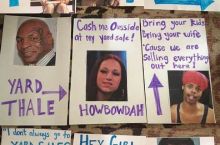 YARD
THALE
Cash me Ousside
at my yard sale!
HOWBOWDAH
Bring your kids
Bring your wife
'Cause we are
selling everything
out here!
I don't always go to
HEY GIRL